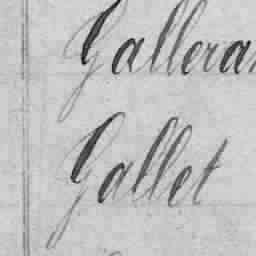 Gallera
Gallet